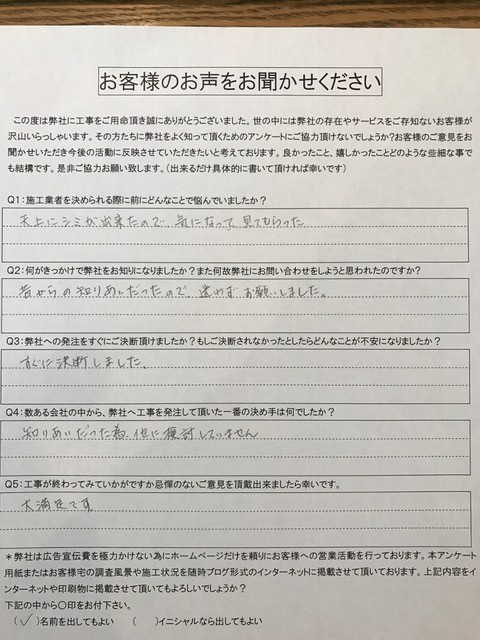 お客様のお声をお聞かせください
この度は弊社に工事をご用命頂き誠にありがとうございました。世の中には弊社の存在やサービスをご存知ないお客様が
沢山いらっしゃいます。その方たちに弊社をよく知って頂くためのアンケートにご協力頂けないでしょうか？お客様のご意見をお
聞かせいただき今後の活動に反映させていただきたいと考えております。良かったこと、嬉しかったことどのような些細な事で
も結構です。是非ご協力お願い致します。（出来るだけ具体的に書いて頂ければ幸いです）
Q1：施工業者を決められる際に前にどんなことで悩んでいましたか？
天上にシミが出来たので、気になって見てもらった
Q2：何がきっかけで弊社をお知りになりましたか？また何故弊社にお問い合わせをしようと思われたのですか？
昔からの知りあいだったので、迷わずお願いしました。
Q3：弊社への発注をすぐにご決断頂けましたか？もしご決断されなかったとしたらどんなことが不安になりましたか？
すぐに決断しました、
Q4：数ある会社の中から、弊社へ工事を発注して頂いた一番の決め手は何でしたか？
知りあいだった為、他に検討していません
Q5：工事が終わってみていかがですか忌憚のないご意見を頂戴出来ましたら幸いです。
大満足です
＊弊社は広告宣伝費を極力かけない為にホームページだけを頼りにお客様への営業活動を行っております。本アンケート
用紙またはお客様宅の調査風景や施工状況を随時ブログ形式のインターネットに掲載させて頂いております。上記内容をイ
ンターネットや印刷物に掲載させて頂いてもよろしいでしょうか？
下記の中から〇印をお付下さい。
（✓）名前を出してもよい　（　）イニシャルなら出してもよい